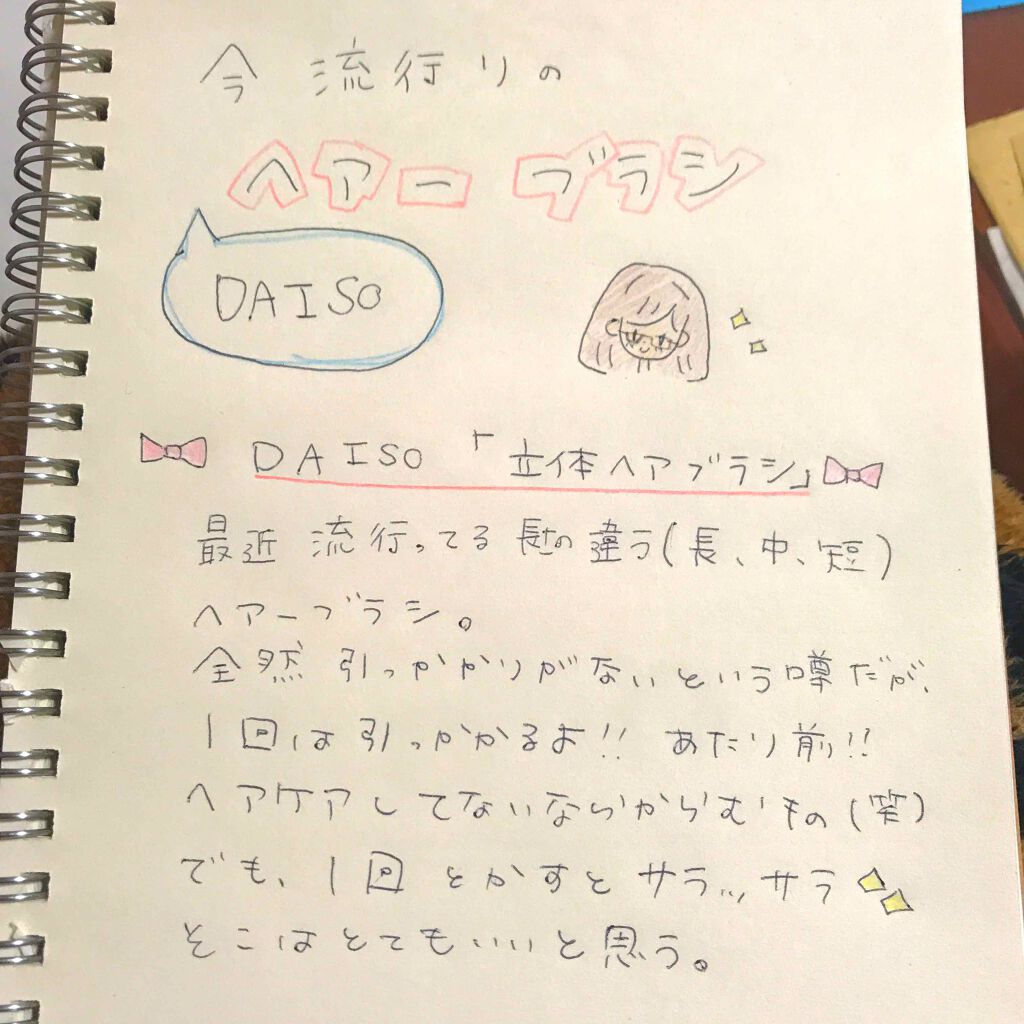 今流行りの
ヘアーブラシ
DAISO
DAISO「立体ヘアブラシ」
最近流行ってる長さの違う(長、中、短)
ヘアーブラシ。
全然引っかかりがないという噂だが、
1回は引っかかるよ!! あたり前!!
ヘアケアしてないならからむもの(笑)
でも、1回とかすとサラッサラ
そこはとてもいいと思う。